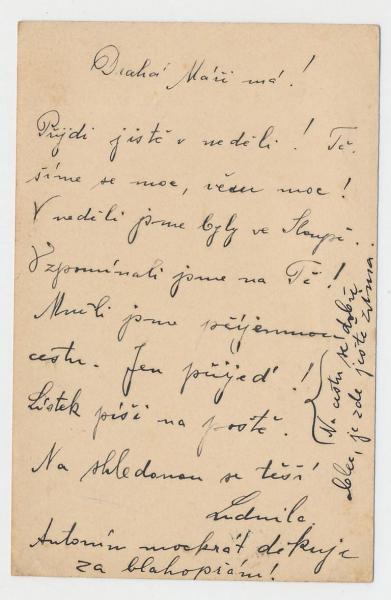 Drahá Máří má!
Přijdi jistě v neděli! Tě-
šíme se moc, věru moc!
V neděli jsme byly ve Sloupě.
Vzpomínali jsme na Tě!
Měli jsme příjemnou
cestu. Jen přijeď!!
Lístek píši na poště.
Na shledanou se těší
Ludmila
Antonín mockrát děkuje
za blahopřání!
Na cestu se dobře
obleč, je zde jistě zima.